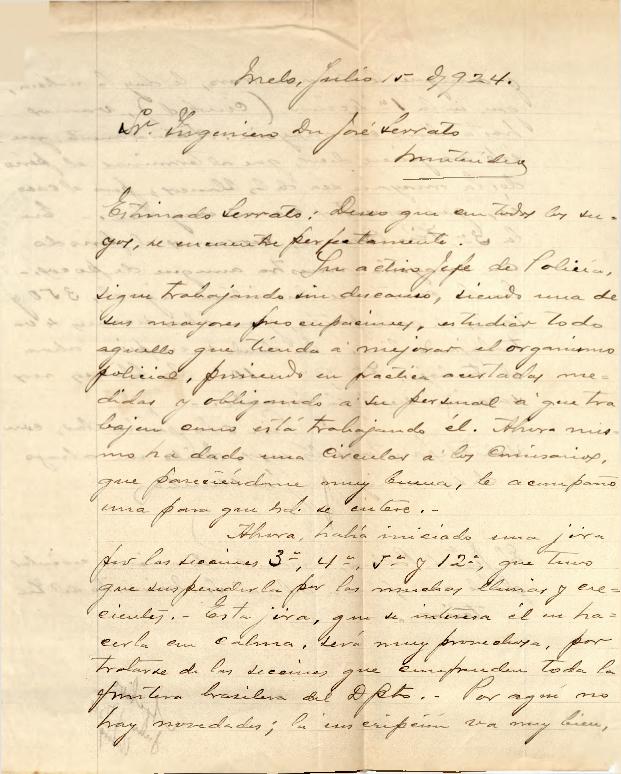 Melo, Julio 15 d/924.
Sr. Ingeniero Dn José Serrato
Montevideo
Estimado Serrato: Deseo que en todos los su-
yos, se encuentre perfectamente.
Su activo Jefe de Policía,
sigue trabajando sin descanso, siendo una de
sus mayores preocupaciones, estudiar todo
aquello que tienda á mejorar el organismo
policial, poniendo en práctica acertadas me-
didas y obligando á su personal á que tra
bajen como está trabajando él. Ahora mis-
mo ha dado una circular á los Comisarios,
que pareciéndome muy buena, le acompaño
una para que Ud. se entere.-
Ahora, había iniciado una jira
por las secciones 3ª, 4ª, 5ª y 12ª, que tuvo
que suspenderla por las muchas lluvias y cre-
cientes.- Esta jira, que se interesa él en ha-
cerla con calma, será muy provechosa, por
tratarse de las secciones que comprenden toda la
frontera brasilera del Dpto.- Por aquí no
hay novedades; la inscripción va muy bien,